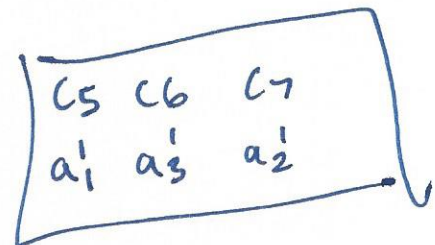 C5 C6 C7
a'1 a'3 a'2